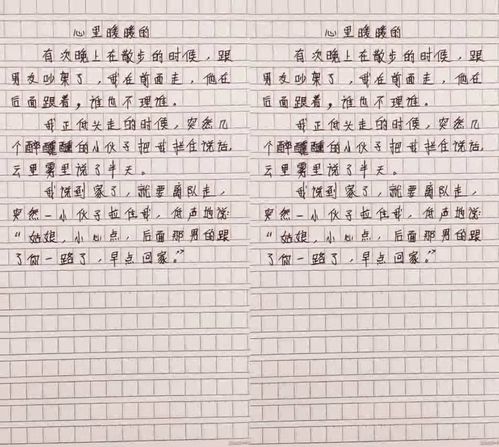 心里暖暖的
有次晚上在散步的时候，跟
男友吵架了，我在前面走，他在
后面跟着，谁也不理谁。
我正低头走的时候，突然几
个醉醺醺的小伙子把我拦住说话，
云里雾里说了半天。
我说到家了，就要离队走，
突然一小伙子拉住我，低声地说：
“姑娘，小心点，后面那男的跟
了你一路了，早点回家。”
心里暖暖的
有次晚上在散步的时候，跟
男友吵架了，我在前面走，他在
后面跟着，谁也不理谁。
我正低头走的时候，突然几
个醉醺醺的小伙子把我拦住说话，
云里雾里说了半天。
我说到家了，就要离队走，
突然一小伙子拉住我，低声地说：
“姑娘，小心点，后面那男的跟
了你一路了，早点回家。”